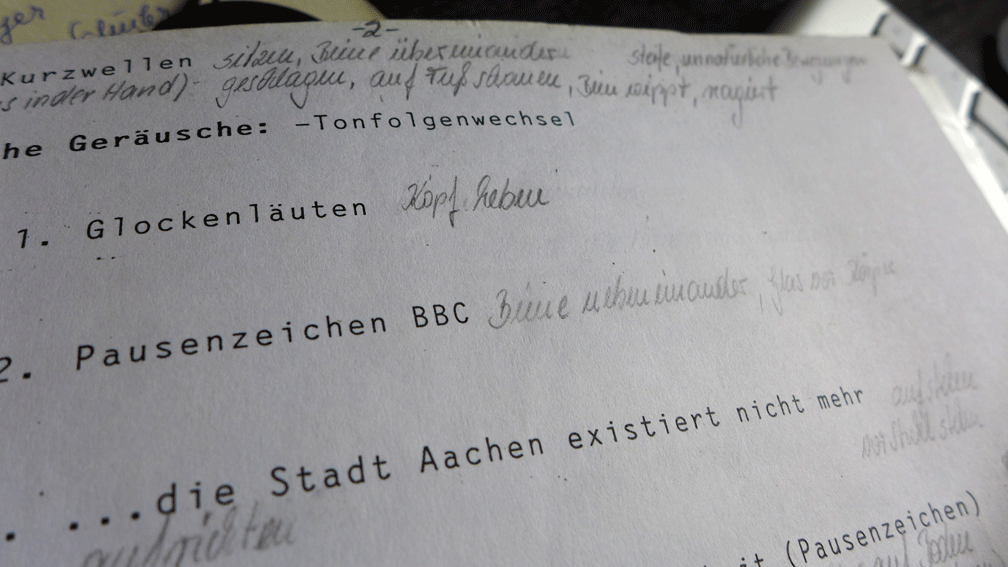 -2-
Kurzwellen sitzen, Beine übereinander steife, unnatürliche Bewegungen
s in der Hand) - geschlagen, auf Fuß schauen, Bein wippt, reagiert
he Geräusche: -Tonfolgenwechsel
1. Glockenläuten Kopf heben
2. Pausenzeichen BBC Beine nebeneinander, Glas vor Körper
. ...die Stadt Aachen existiert nicht mehr aufstehen
vor Stuhl stehen
aufrichten
it (Pausenzeichen)
auf Boden